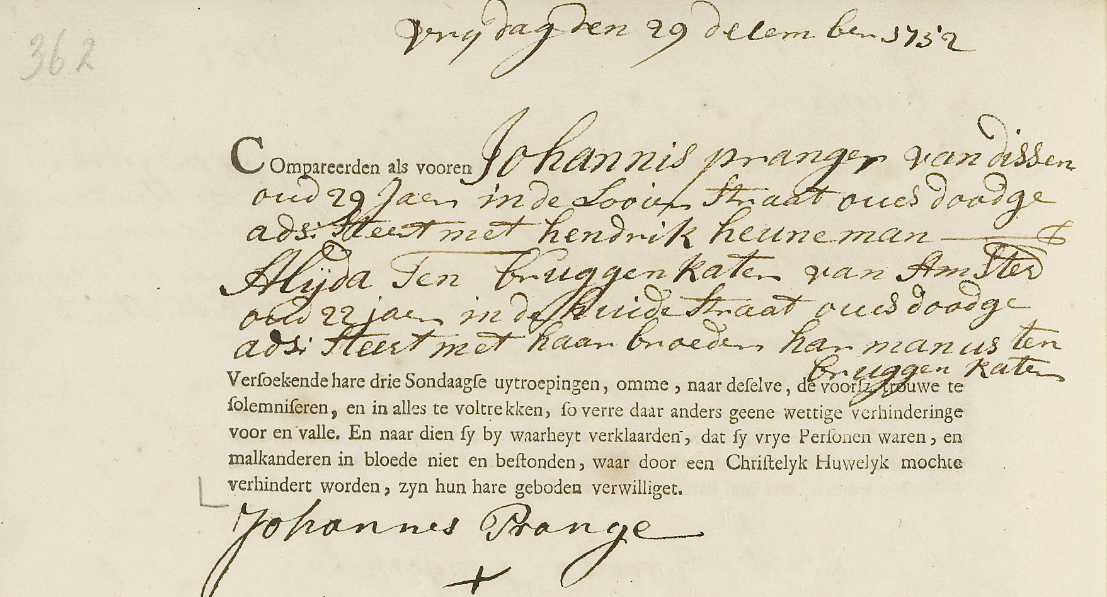 362
vrijdag den 29 december 1752
COmpareerden als vooren Johannis pranger van dissen
oud 29 Jaer in de Looier Straat oues doodge
adsisteert met hendrik heuneman &
Alijda Ten bruggenkater van Amsterd
oud 22 jaer in de Huide Straat oues doodge
adsisteert met haar broeder harmanus ten
bruggenkater
Verſoekende hare drie Sondaagſe uytroepingen, omme, naar deſelve, de voorſz. trouwe te
ſolemniſeren, en in alles te voltrekken, ſo verre daar anders geene wettige verhinderinge
voor en valle. En naar dien ſy by waarheyt verklaarden, dat ſy vrye Perſonen waren, en
malkanderen in bloede niet en beſtonden, waar door een Chriſtelyk Huwelyk mochte
verhindert worden, zyn hun hare geboden verwilliget.
Johannes Prange